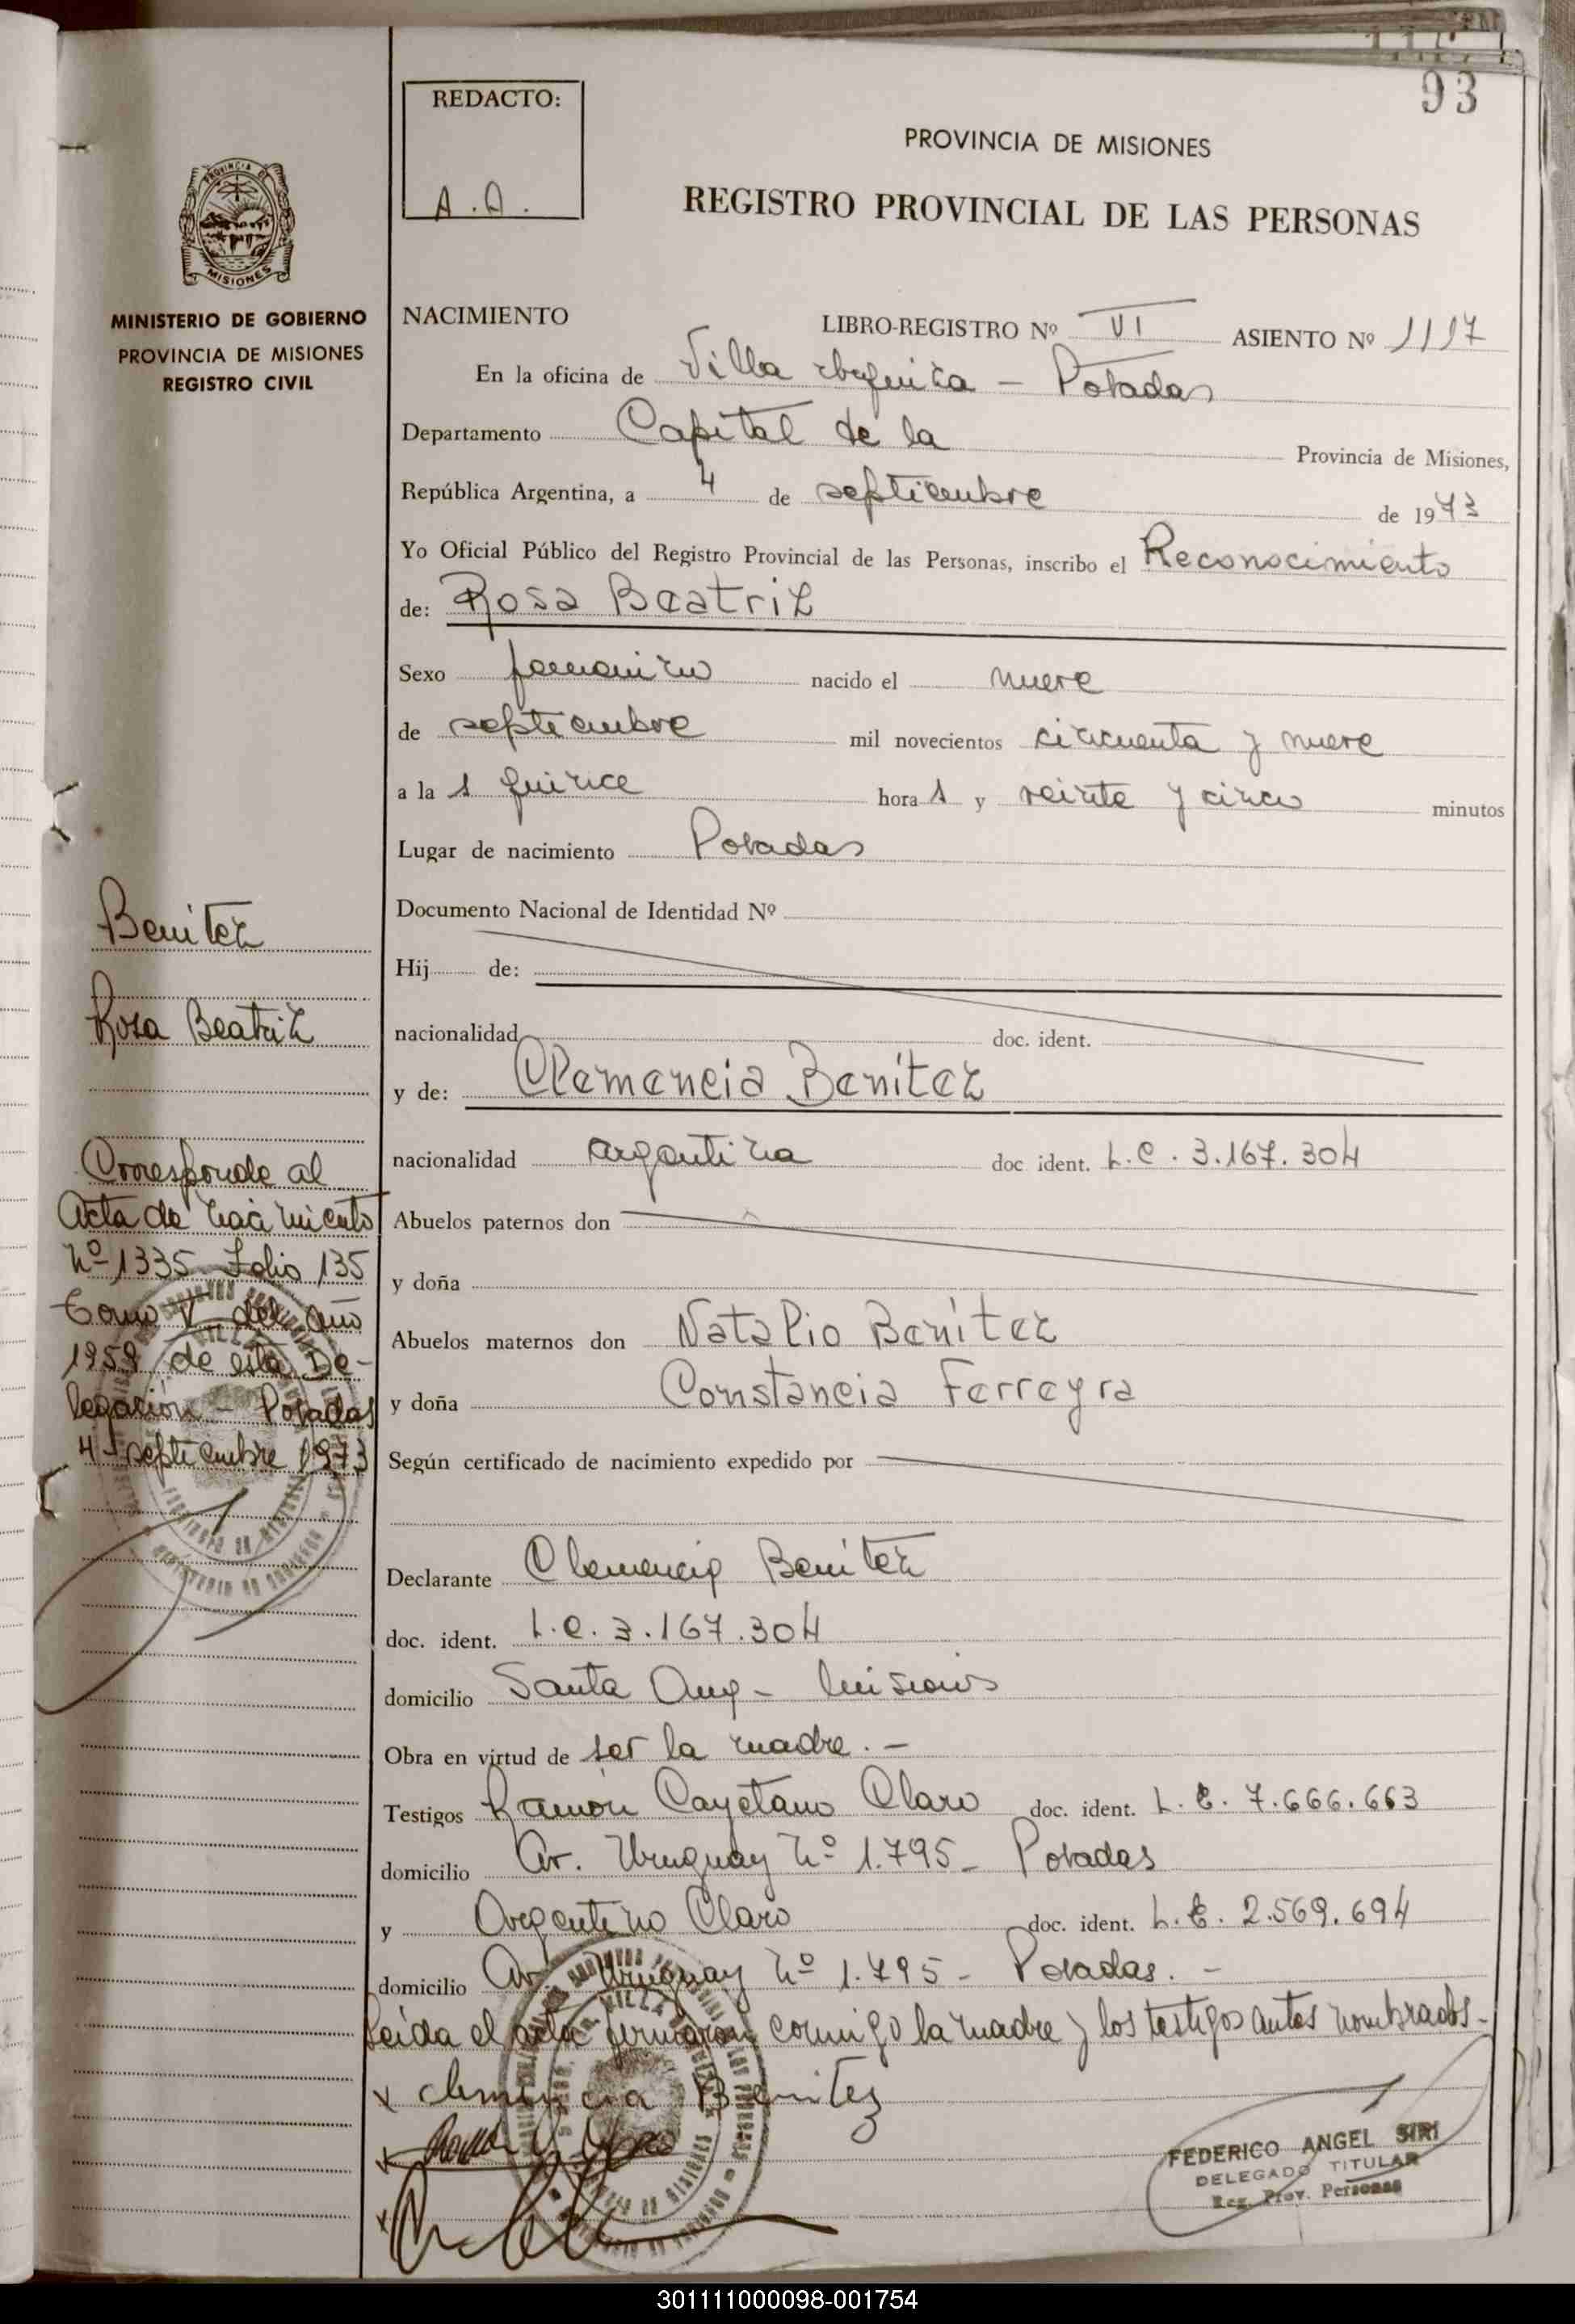 93
REDACTO:
A.A.
PROVINCIA DE MISIONES
REGISTRO PROVINCIAL DE LAS PERSONAS
PROVINCIA DE
MISIONES
MINISTERIO DE GOBIERNO
PROVINCIA DE MISIONES
REGISTRO CIVIL
NACIMIENTO LIBRO-REGISTRO Nº VI ASIENTO Nº 1117
En la oficina de Villa Urquiza - Posadas
Departamento Capital de la Provincia de Misiones,
República Argentina, a 4 de septiembre de 1973
Yo Oficial Público del Registro Provincial de las Personas, inscribo el Reconocimiento
de: Rosa Beatriz
Sexo femenino nacido el nueve
de septiembre mil novecientos cincuenta y nueve
a la s quince hora s y veinte y cinco minutos
Lugar de nacimiento Posadas
Documento Nacional de Identidad Nº
Hij de:
nacionalidad doc. ident.
y de: Clemencia Benítez
nacionalidad argentina doc ident. L.C. 3.167.304
Abuelos paternos don
y doña
Abuelos maternos don Natalio Benítez
y doña Constancia Ferreyra
Según certificado de nacimiento expedido por
Declarante Clemencia Benítez
doc. ident. L.C. 3.167.304
domicilio Santa Ana - Misiones
Obra en virtud de ser la madre. -
Testigos Ramón Cayetano Claro doc. ident. L.E. 7.666.663
domicilio Av. Uruguay Nº 1.795 - Posadas
y Argentino Claro doc. ident. L.E. 2.569.694
domicilio Av. Uruguay Nº 1.795 - Posadas. -
Leída el acta firmaron conmigo la madre y los testigos antes nombrados-
x Clemencia Benitez
x
x
FEDERICO ANGEL SIRI
DELEGADO TITULAR
Reg. Prov. Personas
Benítez
Rosa Beatriz
Corresponde al
Acta de nacimiento
Nº 1335 Folio 135
Tomo V del año
1959 de esta De-
legación - Posadas
4 - septiembre 1973
301111000098-001754